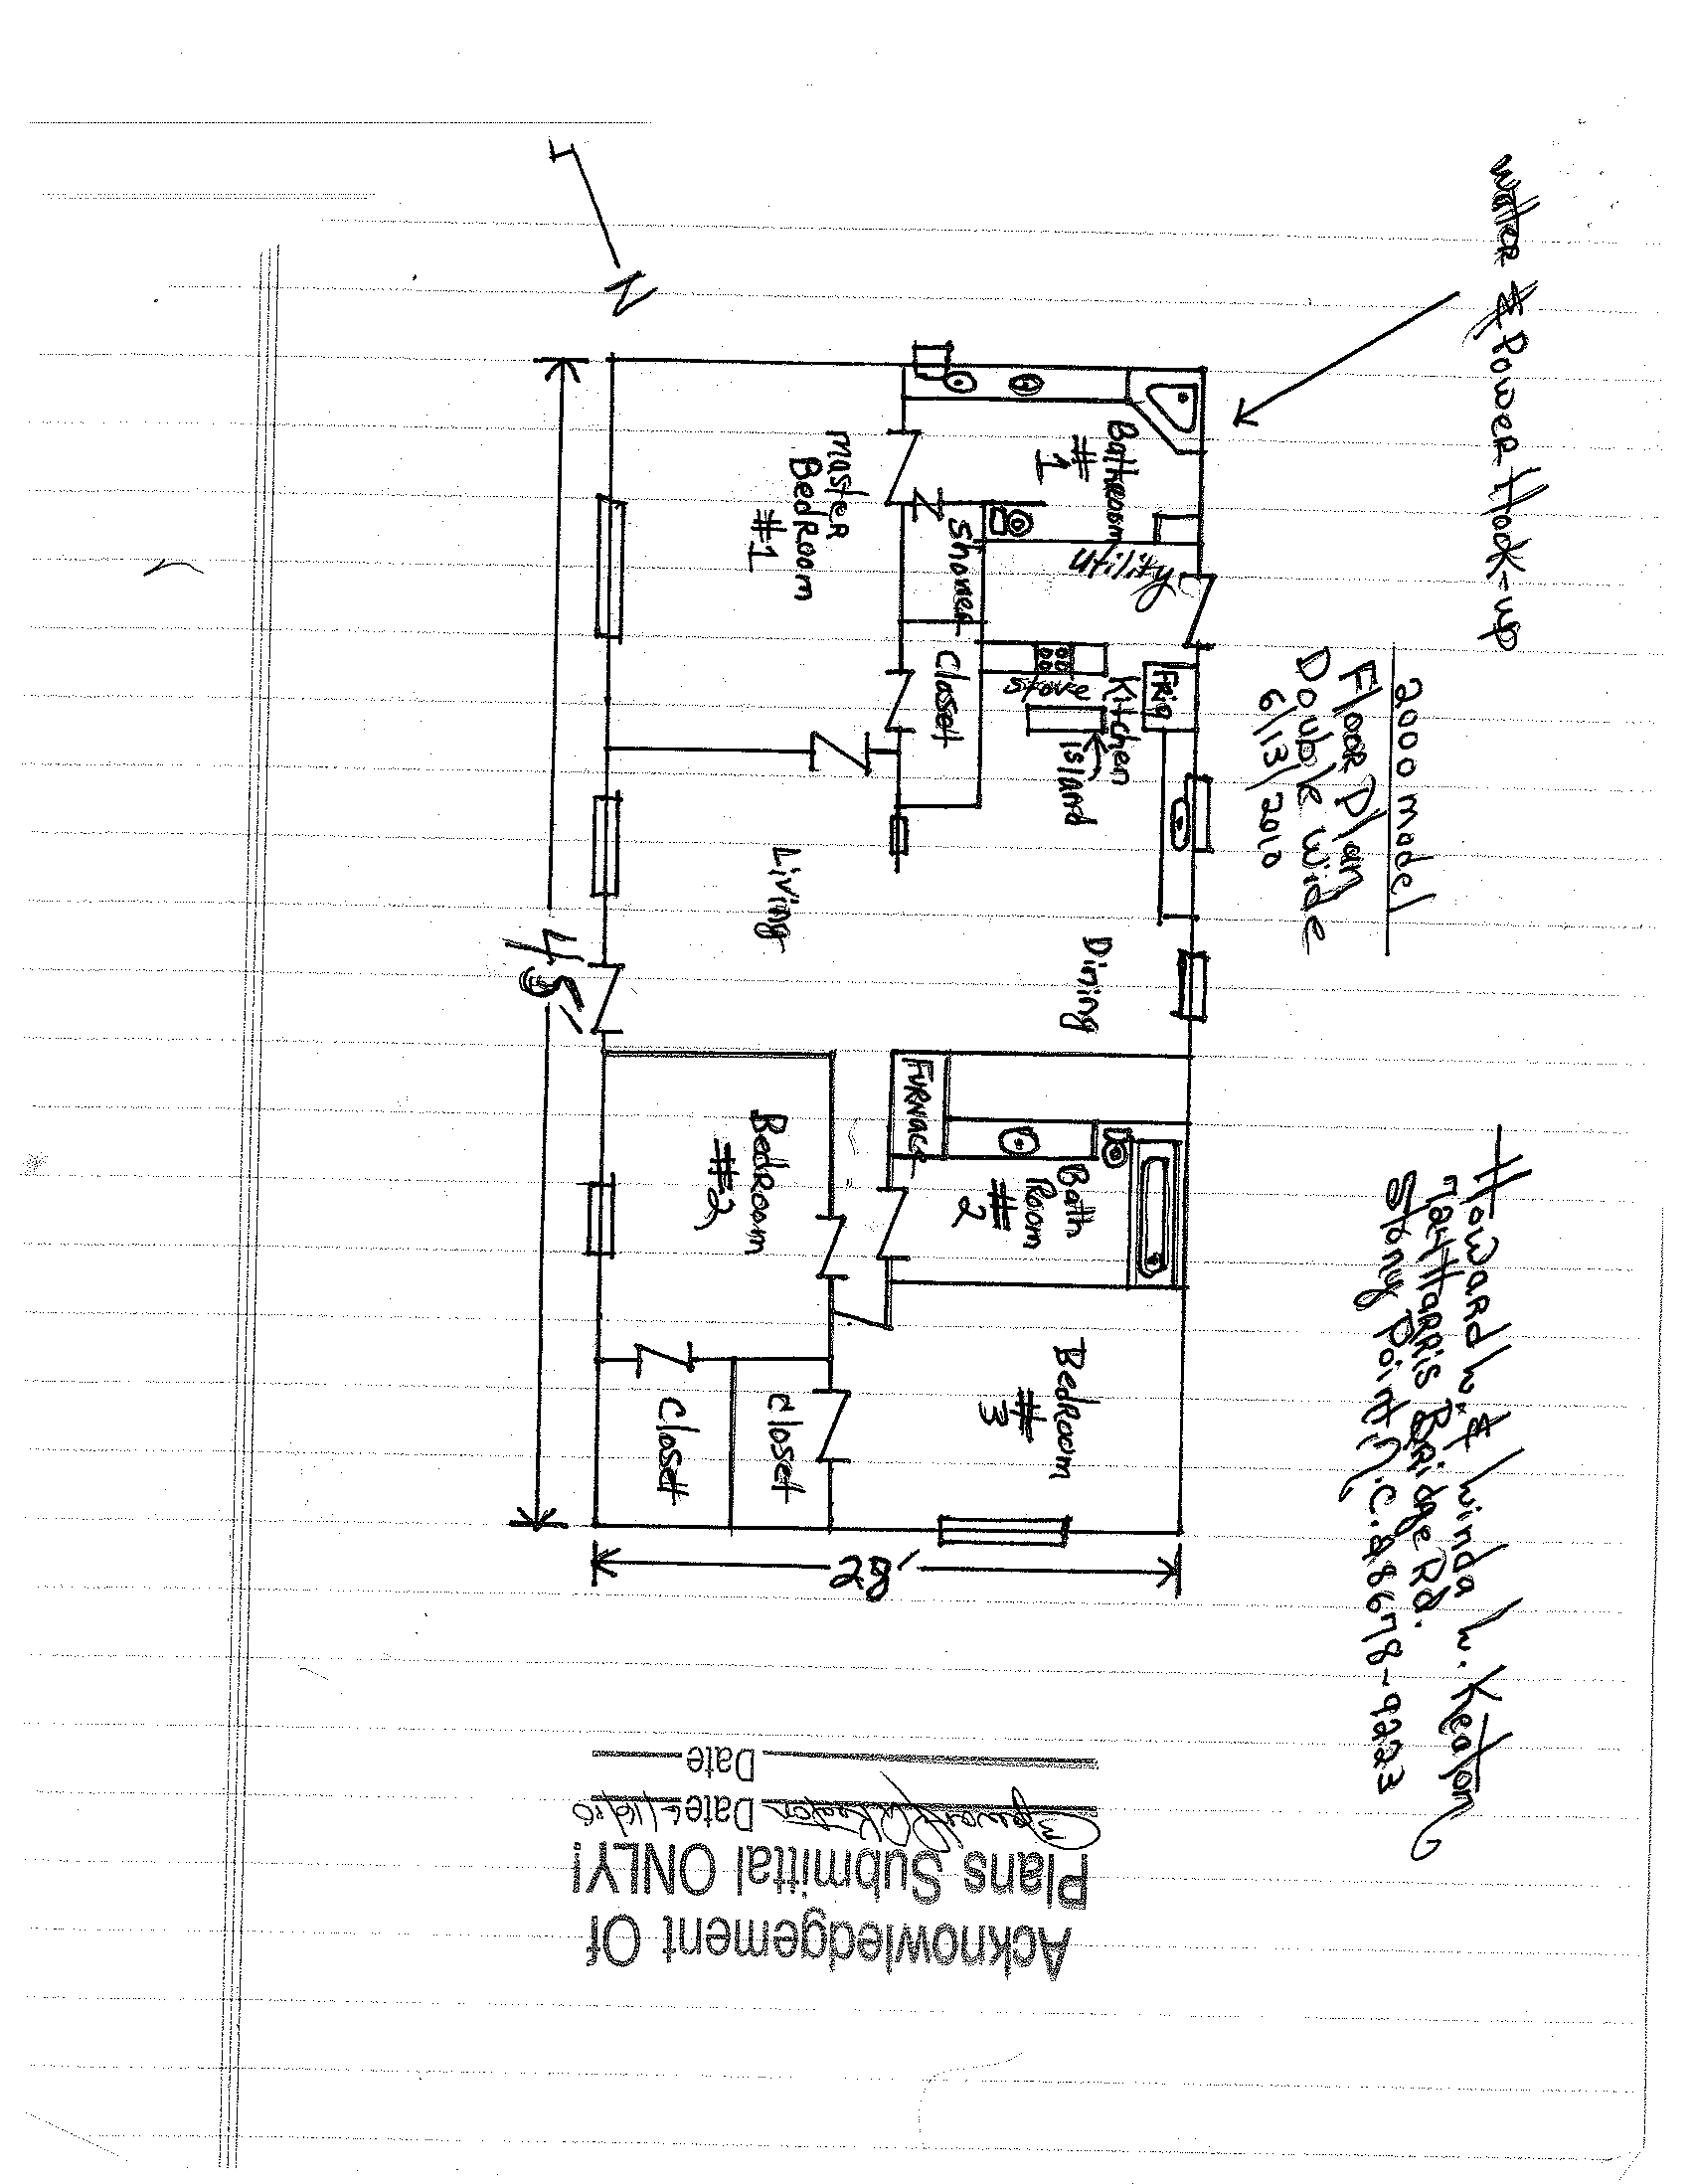 Water & Power Hook-up
2000 model
Floor Plan
Double Wide
6/13/2010
Howard W. & Linda W. Keaton
Taylorsville
Stony Point N.C. 28678-9223
N
Bathroom
#1
Utility
Master
BedRoom
#1
Shower
Closet
Stove
Kitchen
Island
Frig
Living
Dining
48'
Furnace
Bath
Room
#
2
BedRoom
#2
BedRoom
#3
Closet
Closet
28'
Acknowledgement Of
Plans Submittal ONLY!
Date
Date